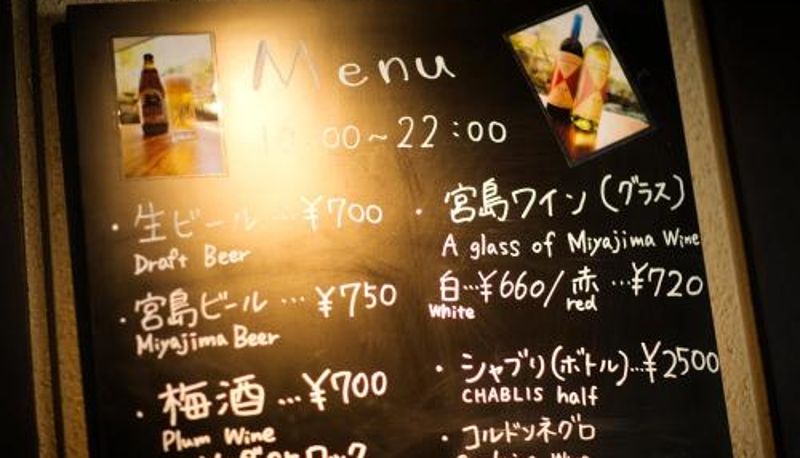 Menu
00~22:00
・生ビール…¥700
Draft Beer
・宮島ビール…¥750
Miyajima Beer
・梅酒…¥700
Plum Wine
・宮島ワイン(グラス)
A glass of Miyajima Wine
白…¥660/赤…¥720
White red
・シャブリ(ボトル)…¥2500
CHABLIS half
・コルドンネグロ